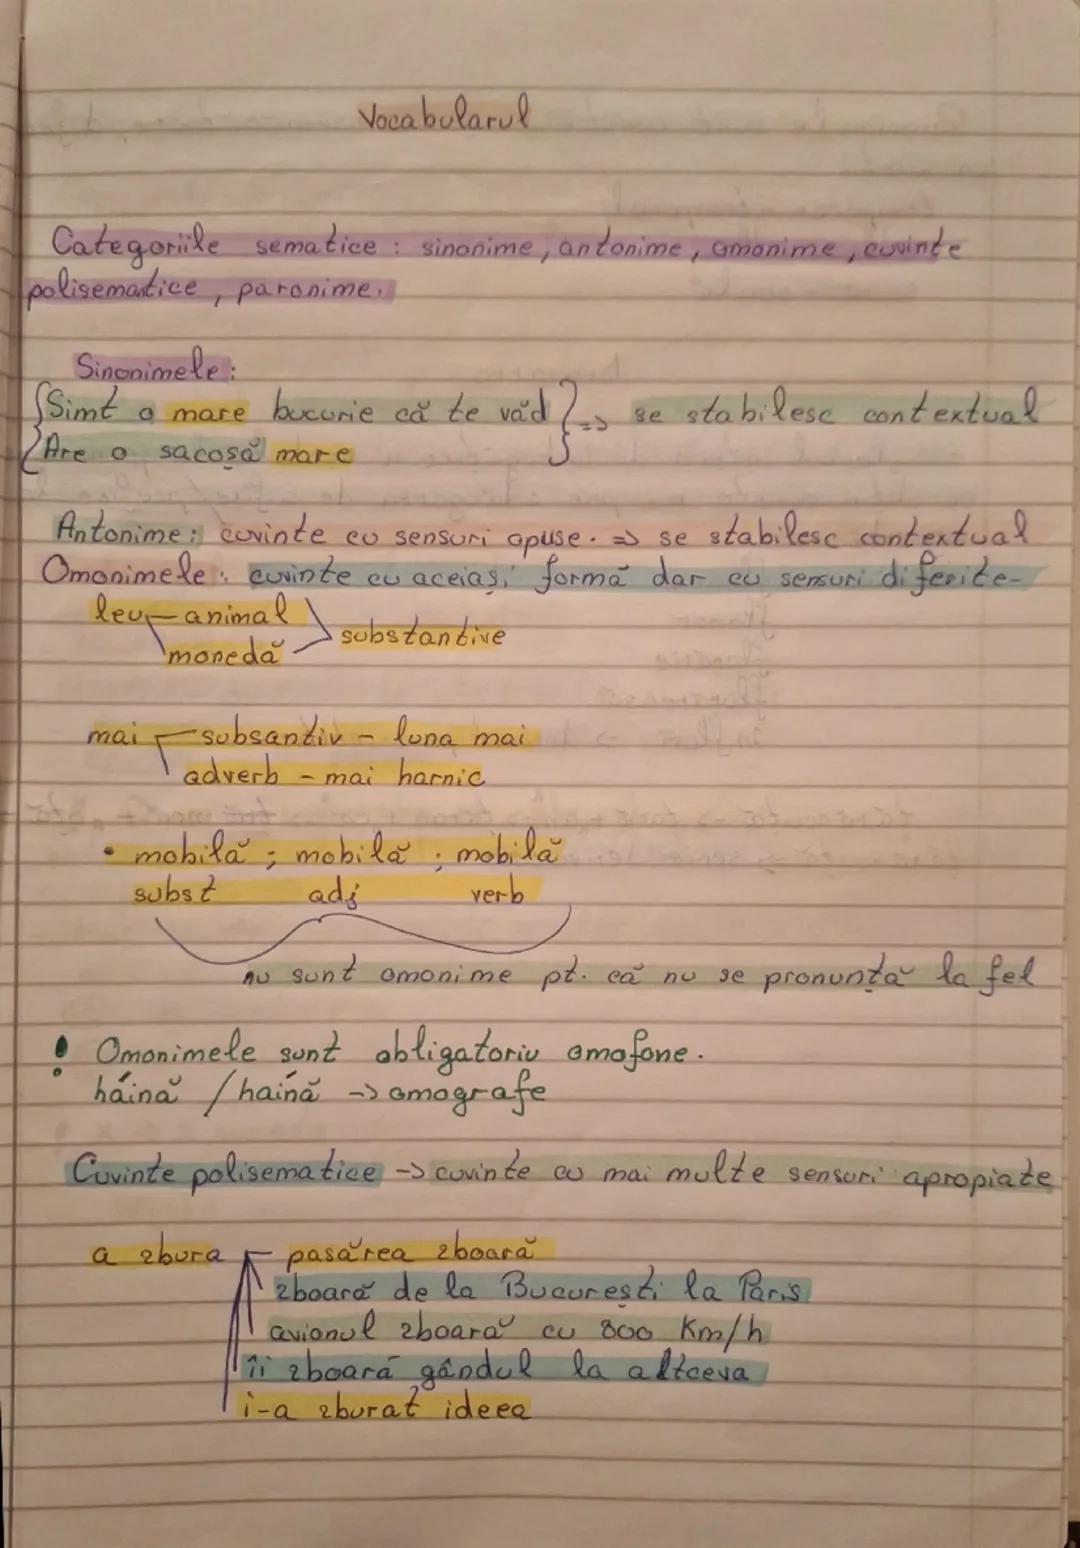 Vocabularul
Categoriile sematice : sinonime, antonime, omonime, cuvinte
polisemantice, paronime.
Sinonimele :
Simt o mare bucurie că te văd => se stabilesc contextual
Are o sacoșă mare
Antonime : cuvinte cu sensuri opuse. => se stabilesc contextual
Omonimele : cuvinte cu aceiași formă dar cu sensuri diferite-
leu - animal
monedă
substantive
mai - subsantiv - luna mai
adverb - mai harnic
• mobilă ; mobilă ; mobilă
subst adj verb
nu sunt omonime pt. că nu se pronunță la fel
! Omonimele sunt obligatoriu omofone.
háină / haínă -> omografe
Cuvinte polisematice -> cuvinte cu mai multe sensuri apropiate
a zbura - pasărea zboară
zboară de la București la Paris
avionul zboară cu 800 Km/h
îi zboară gândul la altceva
i-a zburat ideea